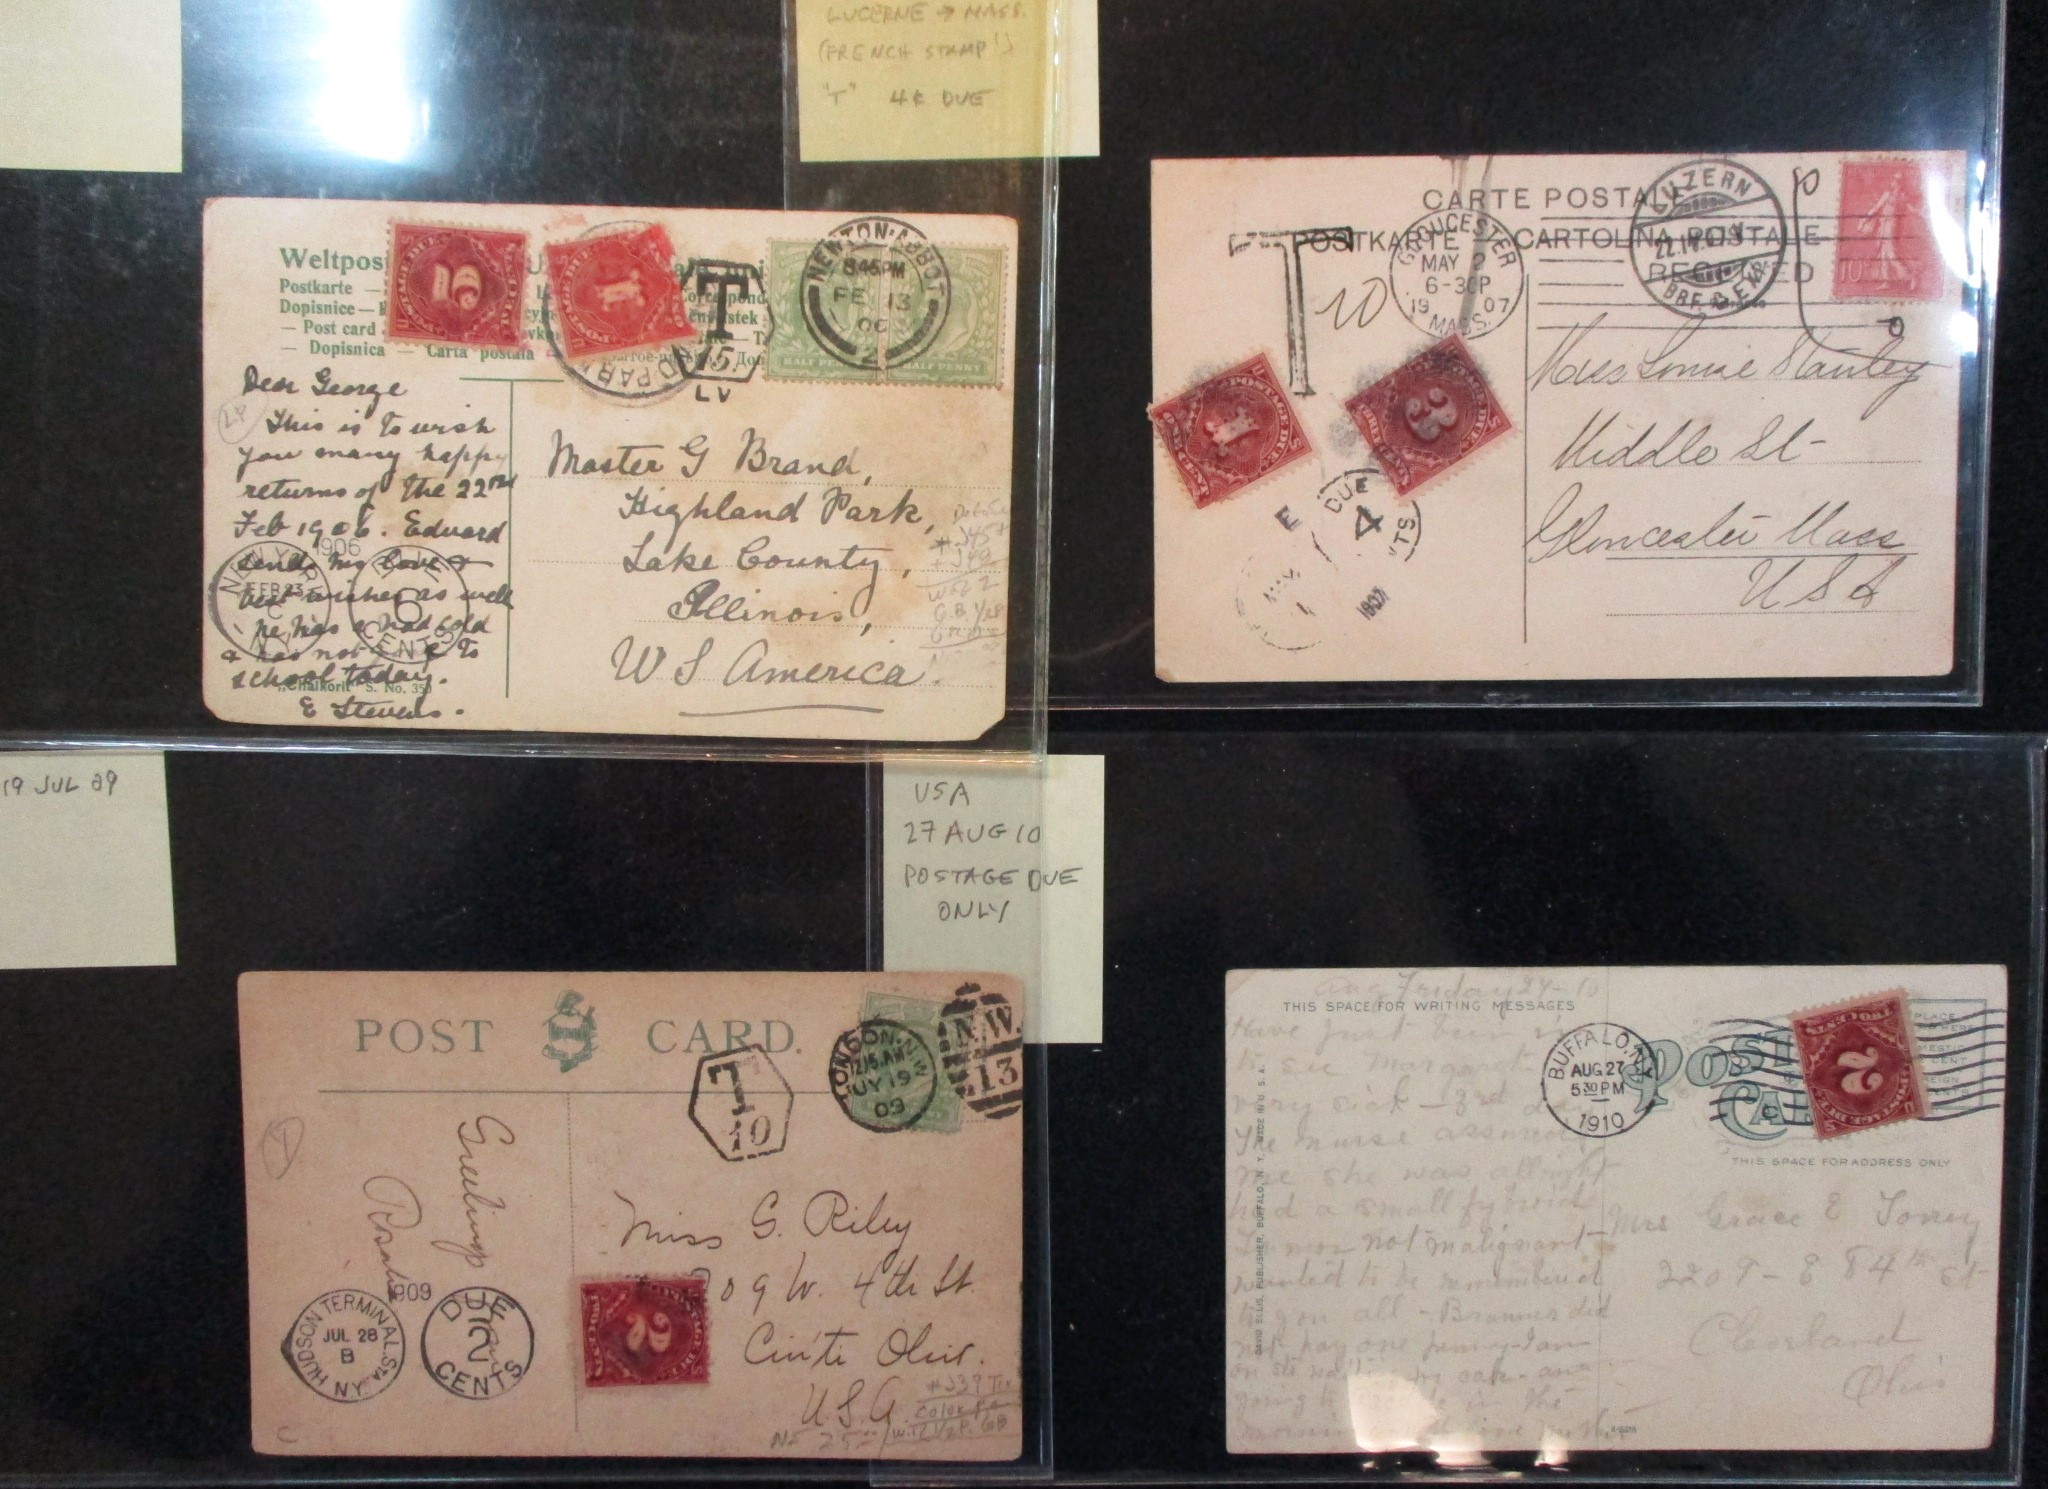 LUCERNE → MASS.
(FRENCH STAMP!)
"T" 4¢ DUE
Weltpos
Postkarte —
Dopisnice —
— Post card
— Dopisnica — Carta postala
POSTAGE DUE
5
POSTAGE DUE
1
T
15
LV
NEWTON·ABBOT
8.45PM
FE 13
06
2
HALF PENNY
HALF PENNY
Dear George
This is to wish
you many happy
returns of the 22nd
Feb 1906. Edward
sends his love &
best wishes as well
he has a bad cold
& has not to
school today.
E Stevens.
"Chalkorit" S. No. 35
NEW YORK
FEB 23
N.Y.
1906
DUE
6
CENTS
Master G Brand,
Highland Park,
Lake County,
Illinois,
U S America.
CARTE POSTALE
POSTKARTE — CARTOLINA POSTALE
T
10
GLOUCESTER
MAY 2
6-30P
19 07
MASS.
LUZERN
BRF.
10
POSTAGE DUE
1
POSTAGE DUE
3
DUE
4
CTS
Miss Louise Stanley
Middle St
Gloucester Mass
USA
19 JUL 09
USA
27 AUG 10
POSTAGE DUE
ONLY
POST CARD.
T
10
LONDON.N.W
12.15.AM
JY 19
09
N.W.
13
Greetings
Rosalie
1909
HUDSON TERMINAL STA.
JUL 28
B
N.Y.
DUE
2
CENTS
Miss G. Riley
209 W. 4th St.
Cin'ti Ohio.
U.S.A.
POSTAGE DUE
2
TWO CENTS
Aug Friday 24-10
THIS SPACE FOR WRITING MESSAGES
Have just been in
to see Margaret
very sick - 3rd day
The nurse assured
me she was allright
had a small fybroid
Tumor not malignant
wanted to be remembered
to you all - Brauner did
not pay one penny - I am
DAVID ELLIS, PUBLISHER, BUFFALO, N. Y. MADE IN U. S. A.
BUFFALO, N.Y.
AUG 27
5 30 PM
1910
POST
CA
POSTAGE DUE
2
TWO CENTS
THIS SPACE FOR ADDRESS ONLY
Mrs Grace E Torrey
2209 - E 84th St
Cleveland
Ohio